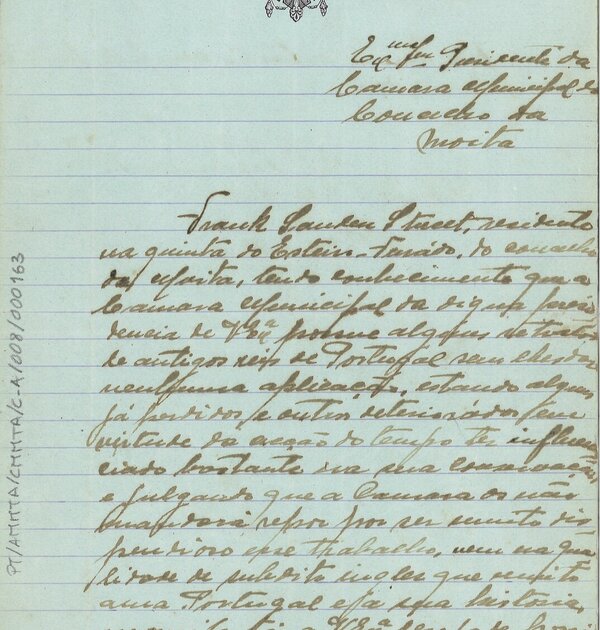 Exmo Snr Presidente da
Camara Municipal do
Concelho da
Moita
Frank Street, residente
na quinta do Esteiro-Furado, do concelho
da Moita, tendo conhecimento que a
Camara Municipal da digna presi
dencia de V. Exª possue alguns retratos
de antigos reis de Portugal sem lhes dar
nenhuma aplicação, estando alguns
já perdidos e outros deteriorados em
virtude da acção do tempo ter influen
ciado bastante na sua conservação
e julgando que a Camara os não
mandará repor por ser muito dis
pendioso esse trabalho, vem na qua
lidade de subdito ingles que muito
ama Portugal e a sua historia,
a V. Exª
PT/AMMTA/CMMTA/C-A/008/000163